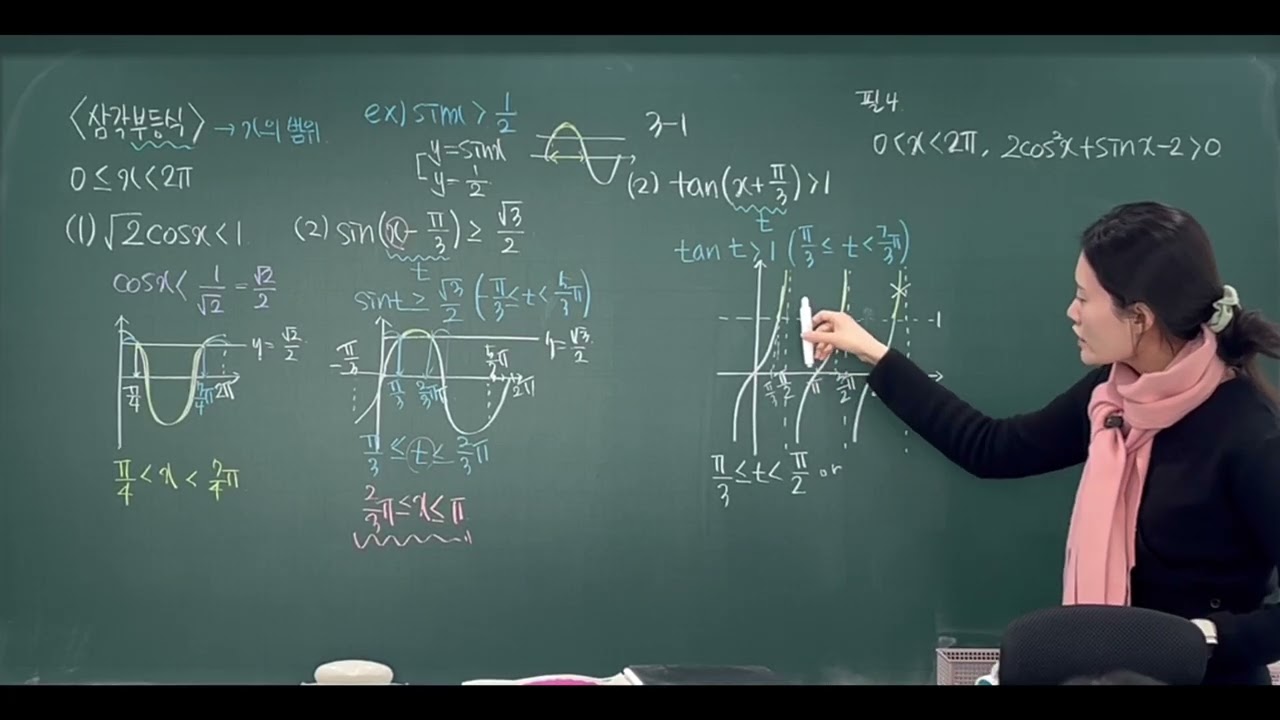 <삼각부등식> → x의 범위
0 ≤ x < 2π
(1) √2cosx < 1
cosx < 1/√2 = √2/2
y = √2/2
π/4 7/4π 2π
π/4 < x < 7/4π
ex) sinx > 1/2
y = sinx
y = 1/2
(2) sin(x - π/3) ≥ √3/2
t
sint ≥ √3/2 (-π/3 ≤ t < 5/3π)
y = √3/2
-π/3 π/3 2/3π 2π
π/3 ≤ t ≤ 2/3π
2/3π ≤ x ≤ π
3-1
(2) tan(x + π/3) > 1
t
tan t > 1 (π/3 ≤ t < 7/3π)
1
π/3 π/2 π 3/2π
π/3 ≤ t < π/2 or
필4.
0 < x < 2π, 2cos²x + sinx - 2 > 0